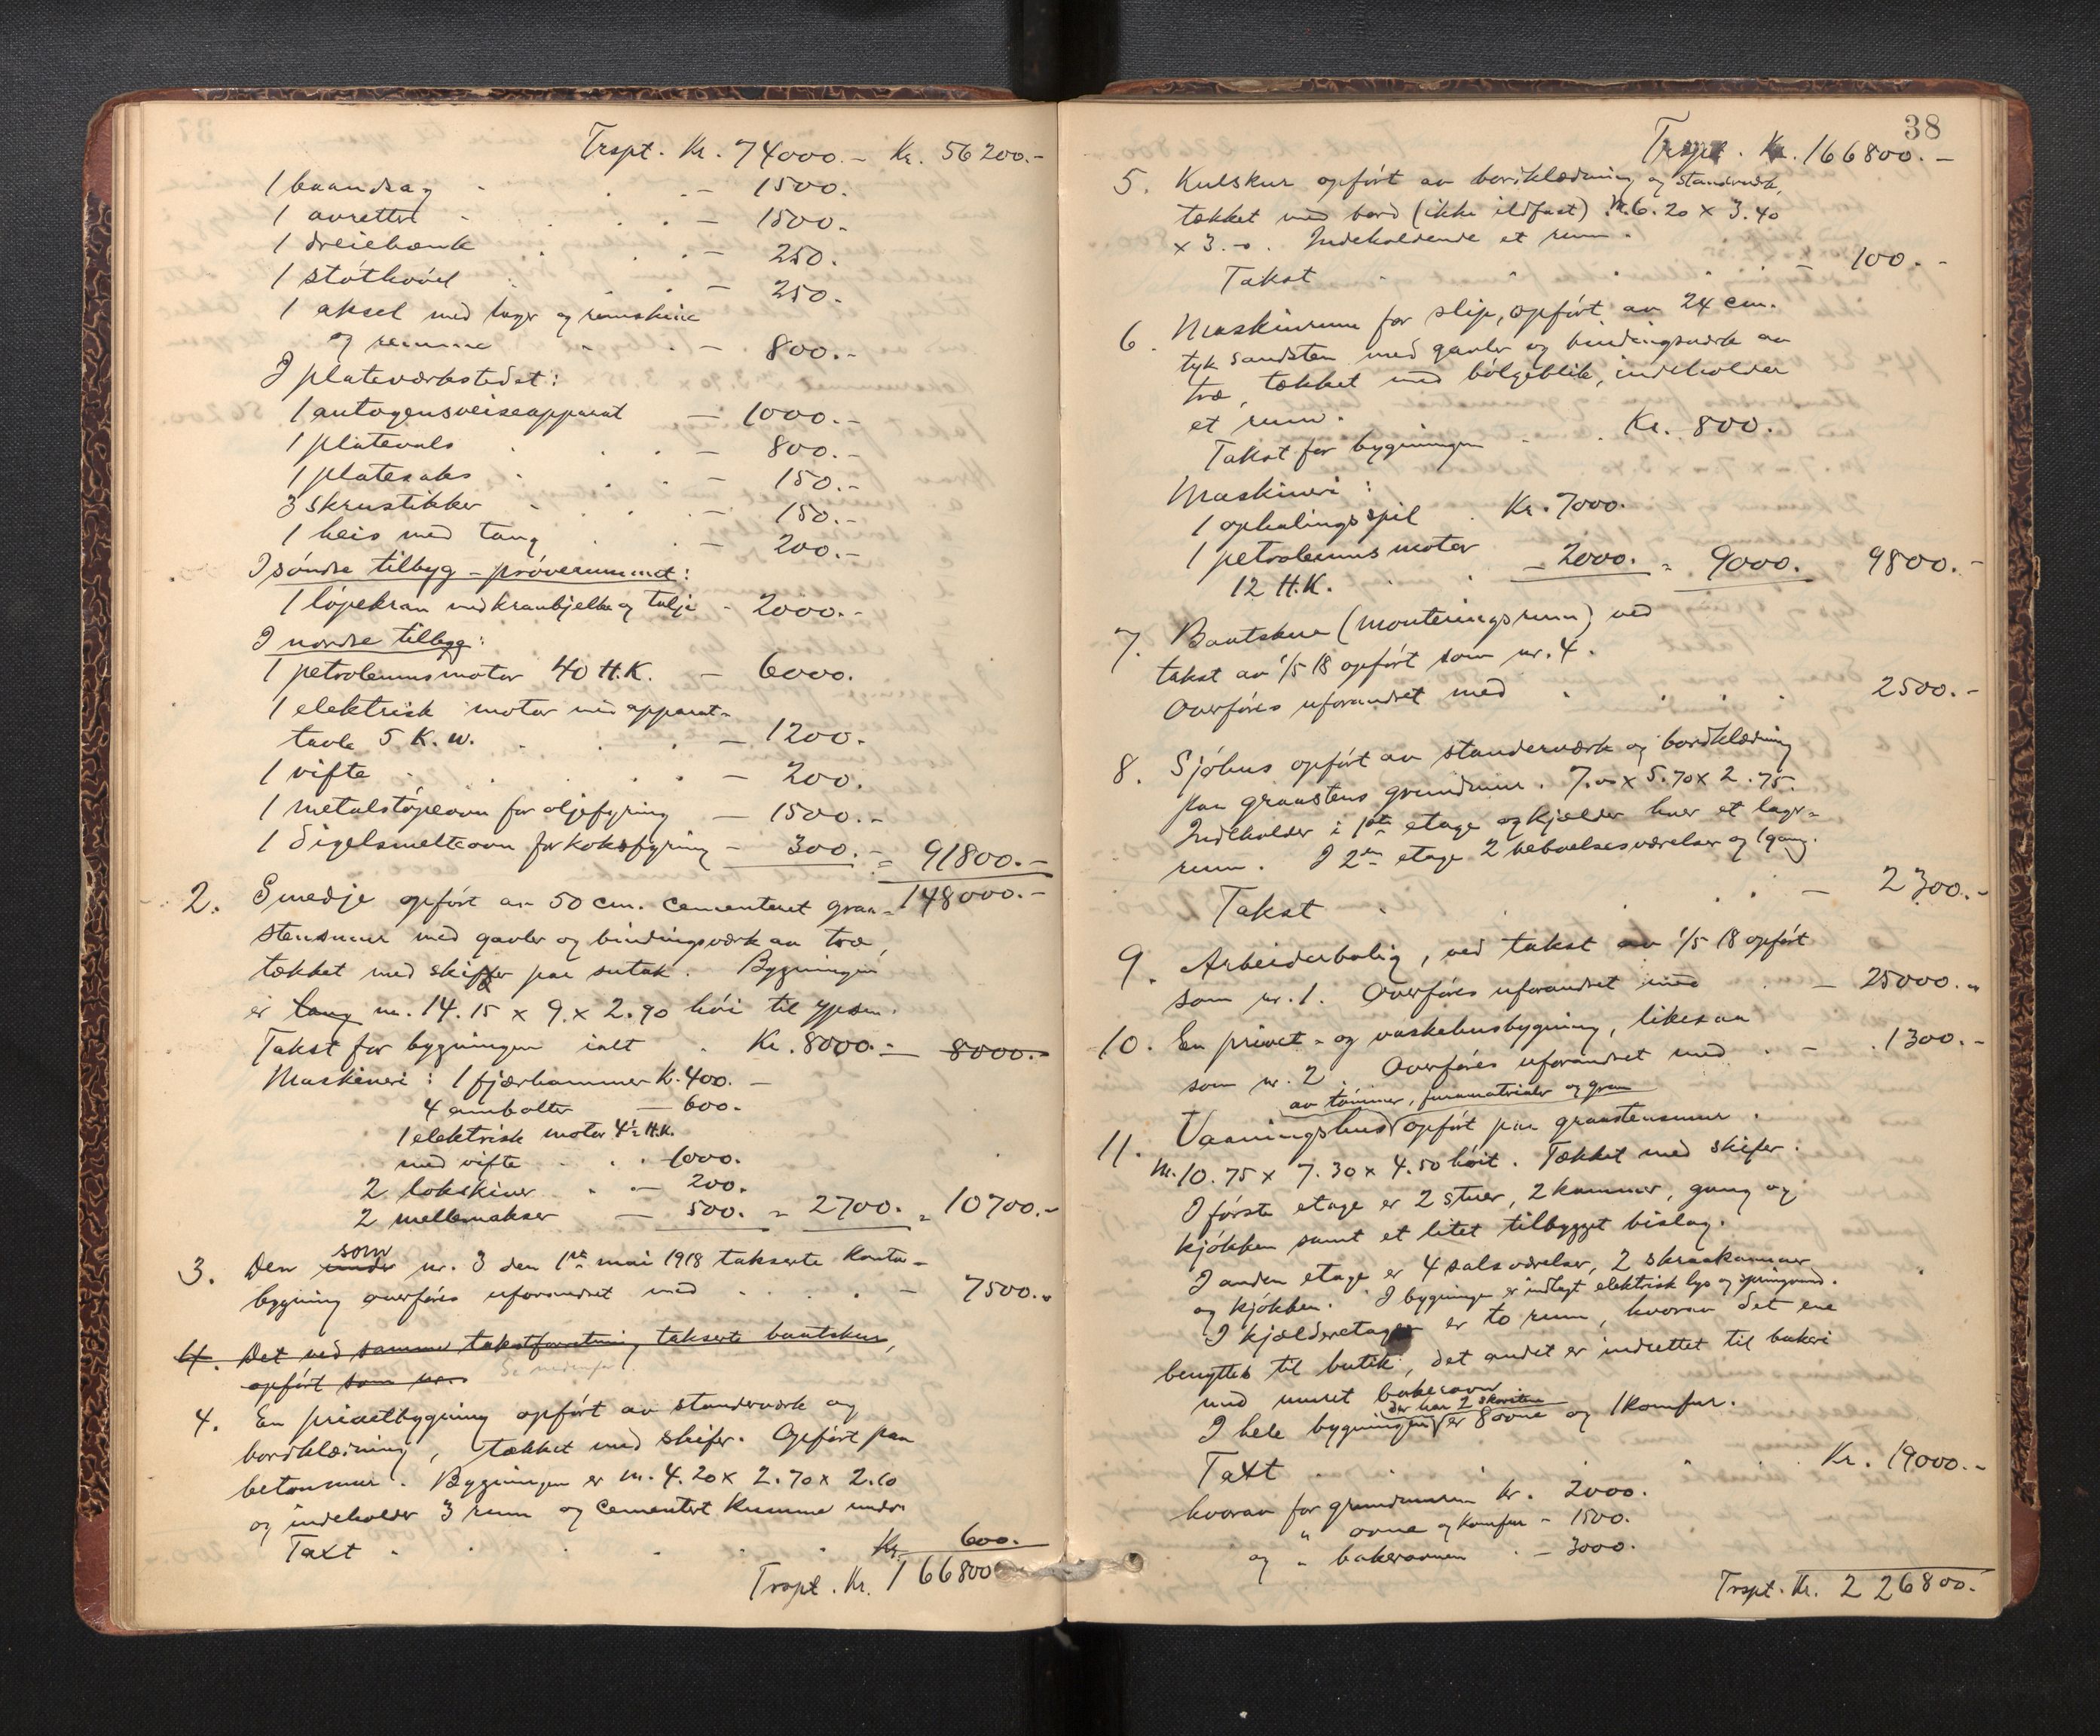 Trspt. Kr. 74000.- Kr. 56200.-
1 baandsag - 1500.
1 avretter - 1500.
1 dreiebænk - 250.
1 støthøvel - 250.
1 aksel med lager og remskive
og remme - 800.-
I plateværkstedet:
1 autogensveiseapparat - 1000.-
1 platevals - 800.-
1 platesaks - 150.-
3 skrustikker - 150.-
1 heis med tang - 200.-
I søndre tilbyg - prøverummet:
1 løpekran med kranbjelke og talje - 2000.-
I nordre tilbygg:
1 petroleumsmotor 40 H.K. - 6000.
1 elektrisk motor med apparat-
tavle 5 K.W. - 1200.
1 vifte - 200.
1 metalstøpeovn for oljefyring - 1500.-
1 digelsmelteovn for koksfyring - 300.- = 91800.-
148000.-
2. Smedje opført av 50 cm. cementeret graa-
stensmur med gavler og bindingsværk av træ,
tækket med skifer paa sutak. Bygningen
er lang m. 14.15 x 9. x 2.90 høi til gesims.
Takst for bygningen ialt Kr. 8000.- 8000.-
Maskineri: 1 fjærhammer K. 400.-
4 ambolter - 600.
1 elektrisk motor 4½ H.K.
med vifte - 1000.
2 lokskiver - 200.
2 mellemakser - 500. = 2700. = 10700.-
som
3. Den under nr. 3 den 1ste mai 1918 takserte kontor-
bygning overføres uforandret med - 7500.-
4. Det ved samme takstforretning takserte baatskur,
opført som nr. Se nedenfor.
4. En privetbygning opført av standerværk og
bordklædning, tækket med skifer. Opført paa
betonmur. Bygningen er m. 4.20 x 2.70 x 2.60
og indeholder 3 rum og cementert kumme under
Taxt Kr. 600.
Trspt. Kr. 166800
38
Trspt. Kr. 166800.-
5. Kulskur opført av bordklædning og standverk,
tækket med bord (ikke ildfast). M. 6.20 x 3.40
x 3.-. Indeholdende et rum.
Takst - 100.-
6. Maskinrum for slip, opført av 24 cm.
tyk sandsten med gavler og bindingsværk av
træ, tækket med bølgeblik, indeholder
et rum.
Takst for bygningen Kr. 800.
Maskineri:
1 ophalingsspil Kr. 7000.
1 petroleumsmotor
12 H.K. - 2000. = 9000. 9800.-
7. Baatskur (monteringsrum) ved
takst av 1/5 18 opført som nr. 4.
Overføres uforandret med 2500.-
8. Sjøhus opført av standerværk og bordklædning
paa graastens grundmur. 7.00 x 5.70 x 2.75.
Indeholder i 1ste etage og kjælder hver et lager-
rum. I 2en etage 2 beboelsesværelser og 1 gang.
Takst - 2300.-
9. Arbeiderbolig, ved takst av 1/5 18 opført
som nr. 1. Overføres uforandret med - 25000.-
10. En privet- og vaskehusbygning, likesaa
som nr. 2. Overføres uforandret med - 1300.-
av tømmer, furumaterialer og gran
11. Vaaningshus opført paa graastensmur.
M. 10.75 x 7.30 x 4.50 høit. Tækket med skifer.
I første etage er 2 stuer, 2 kammer, gang og
kjøkken samt et litet tilbygget bislag.
I anden etage er 4 salsværelser, 2 skraakammer
og kjøkken. I bygningen er indlagt elektrisk lys og springvand.
I kjælderetagen er to rum, hvorav det ene
benyttes til butik, det andet er indrettet til bakeri
med muret bakerovn
der har 2 skorsten
I hele bygningen er 8 ovne og 1 komfur.
Taxt Kr. 19000.-
hvorav for grundmuren kr. 2000.
" ovne og komfur - 1500.
og " bakerovnen - 3000.
Trspt. Kr. 226800.-